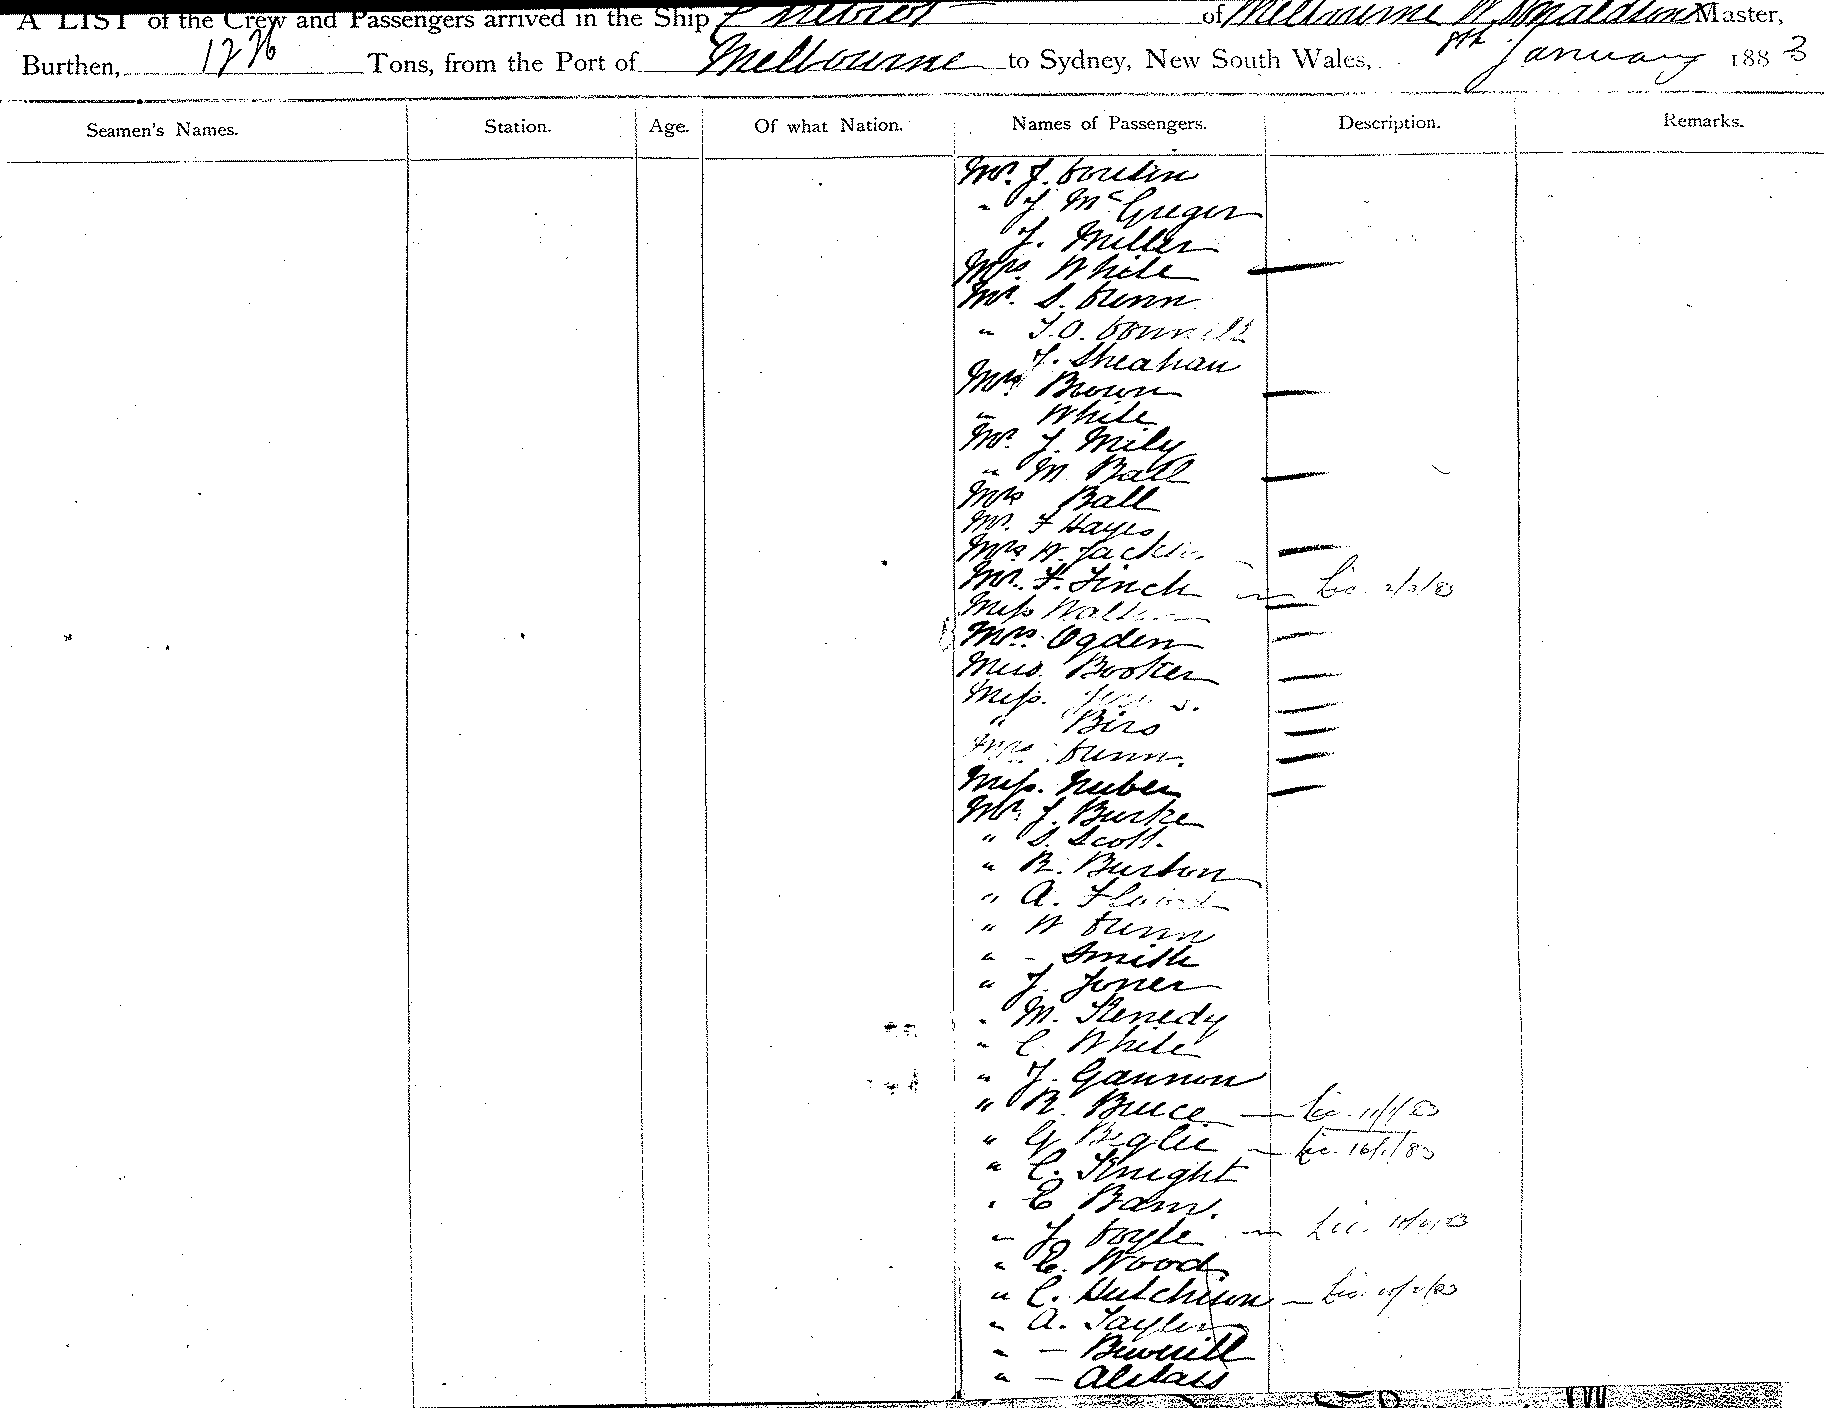 A LIST of the Crew and Passengers arrived in the Ship Cheviot of Melbourne W. Donaldson Master,
Burthen, 1226 Tons, from the Port of Melbourne to Sydney, New South Wales, 8th January 1883
Seamen's Names. Station. Age. Of what Nation. Names of Passengers. Description. Remarks.
Mr. J.
" J. McGregor
J. Miller
Mrs. White
Mr. S. Dunn
" T. O.
J. Sheahan
Mrs Brown
" White
Mr. J. Mily
" M. Ball
Mrs Ball
Mr. F Hayes
Mrs W.
Mr. F. Finch
Miss
Mrs. Ogden
Miss. Booker
Miss.
" Biro
Mrs. Dunn.
Miss. Huber
Mr. J. Burke
" S. Scott.
" R. Burton
" A.
" W Dunn
" - Smith
" J. Jones
" M. Kenedy
" C. White
" J. Gannon
" R. Bruce — Lic. 11/1/83
" G. Beglie — Lic. 16/1/83
" C. Knight
" E Bam.
" J Doyle — Lic.
" E. Wood
" C. Hutchison — Lic.
" A. Taylor
" —
" —